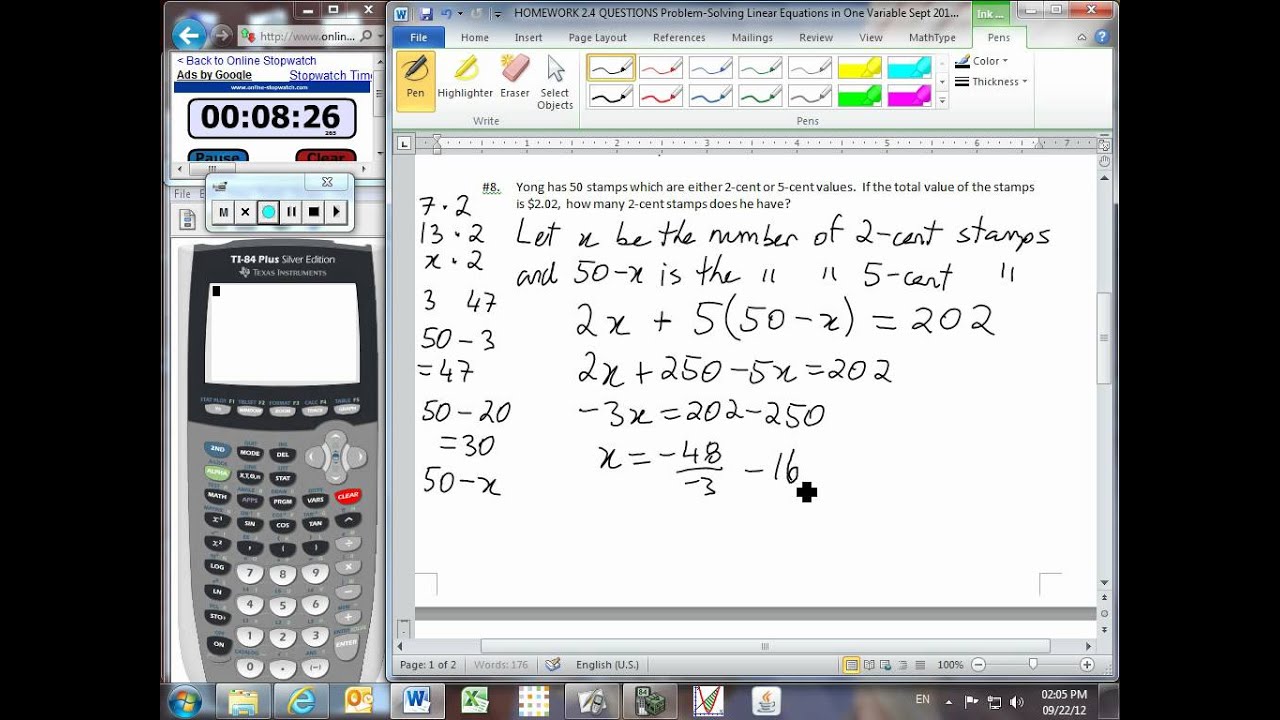 HOMEWORK 2.4 QUESTIONS Problem-Solving Linear Equations in One Variable Sept 201...
Ink ...
http://www.onlin...
File Home Insert Page Layout References Mailings Review View MathType Pens
< Back to Online Stopwatch
Ads by Google Stopwatch Time
www.online-stopwatch.com
00:08:26
265
Pause Clear
Pen Highlighter Eraser Select Objects
Color
Thickness
Write Pens
L 1 2 3 4 5 6 7
File
M
#8. Yong has 50 stamps which are either 2-cent or 5-cent values. If the total value of the stamps
is $2.02, how many 2-cent stamps does he have?
7 · 2
13 · 2
x · 2
3 47
50 - 3
= 47
50 - 20
= 30
50 - x
Let x be the number of 2-cent stamps
and 50-x is the " " 5-cent "
2x + 5(50-x) = 202
2x+250-5x=202
-3x=202-250
x = -48
-3
- 16
TI-84 Plus Silver Edition
TEXAS INSTRUMENTS
STAT PLOT F1 TBLSET F2 FORMAT F3 CALC F4 TABLE F5
Y= WINDOW ZOOM TRACE GRAPH
2ND MODE DEL
ALPHA X,T,Θ,n STAT
MATH APPS PRGM VARS CLEAR
x⁻¹ SIN COS TAN ^
x² , ( ) ÷
LOG 7 8 9 ×
LN 4 5 6 −
STO▸ 1 2 3 +
ON 0 . (−) ENTER
Page: 1 of 2 Words: 176 English (U.S.) 100%
EN 02:05 PM
09/22/12